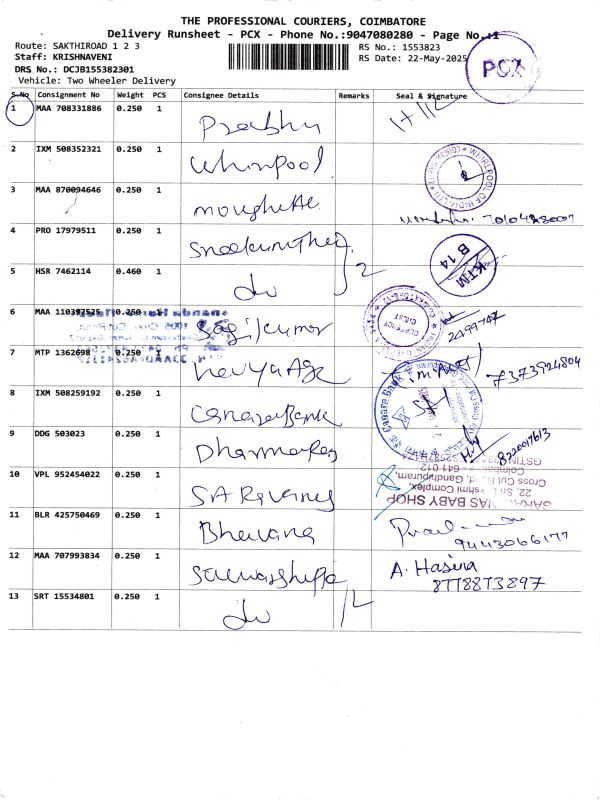 THE PROFESSIONAL COURIERS, COIMBATORE
Delivery Runsheet - PCX - Phone No.:9047080280 - Page No.:1
Route: SAKTHIROAD 1 2 3
RS No.: 1553823
Staff: KRISHNAVENI
RS Date: 22-May-2025
PCX
DRS No.: DCJB155382301
Vehicle: Two Wheeler Delivery
S.No Consignment No Weight PCS Consignee Details Remarks Seal & Signature
1 MAA 708331886 0.250 1 Prabhu
2 IXM 508352321 0.250 1 Whirlpool
WHIRLPOOL OF INDIA LTD
3 MAA 870094646 0.250 1
4 PRO 17979511 0.250 1
KTM
B 14
5 HSR 7462114 0.460 1 do 2
6 MAA 110397525 0.250 1
7 MTP 1362698 0.250 1
7373924804
8 IXM 508259192 0.250 1 Canara Bank
Canara Bank
9 DDG 503023 0.250 1
8220017613
10 VPL 952454022 0.250 1
BABY SHOP
22, Sri Lakshmi Complex,
Cross Cut Road, Gandhipuram,
Coimbatore - 641 012
11 BLR 425750469 0.250 1 Bhuvana
9443066177
12 MAA 707993834 0.250 1
A. Hasina
8778873897
13 SRT 15534801 0.250 1 do